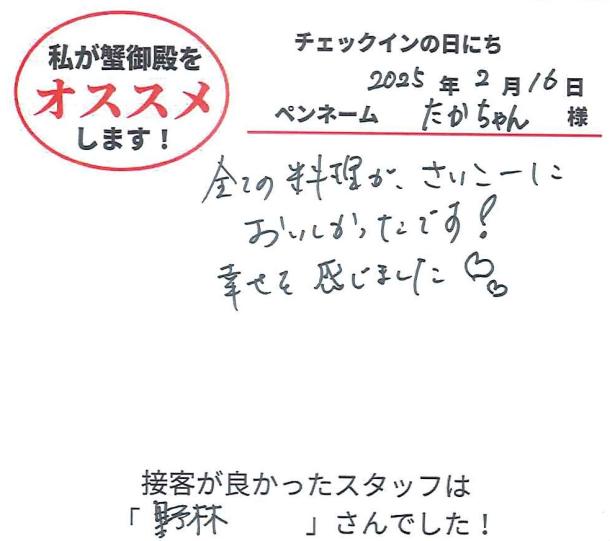 私が蟹御殿を
オススメ
します！
チェックインの日にち
2025年2月16日
ペンネーム たかちゃん 様
全ての料理が、さいこーに
おいしかったです！
幸せを感じました
接客が良かったスタッフは
「野林」さんでした！